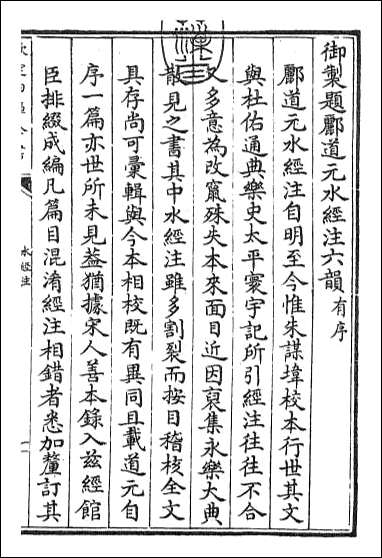 御製題酈道元水經注六韻有序
酈道元水經注自明至今惟朱謀㙔校本行世其文
與杜佑通典樂史太平寰宇記所引經注往往不合
又多意為改竄殊失本來面目近因裒集永樂大典
散見之書其中水經注雖多割裂而按目稽核全文
具存尚可彚輯與今本相校既有異同且載道元自
序一篇亦世所未見葢猶據宋人善本録入兹經館
臣排綴成編凡篇目混淆經注相錯者悉加釐訂其
水經注
一